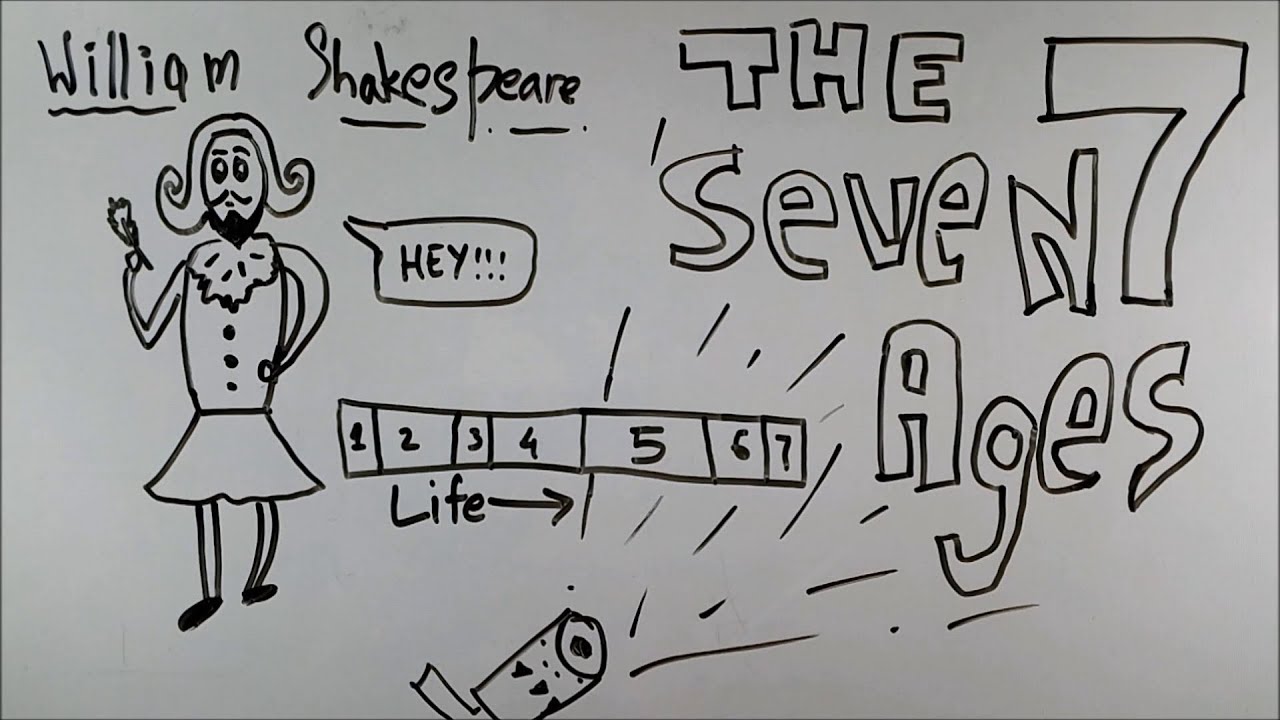 William Shakespeare
HEY!!!
1 2 3 4 5 6 7
Life
THE
SeveN 7
Ages